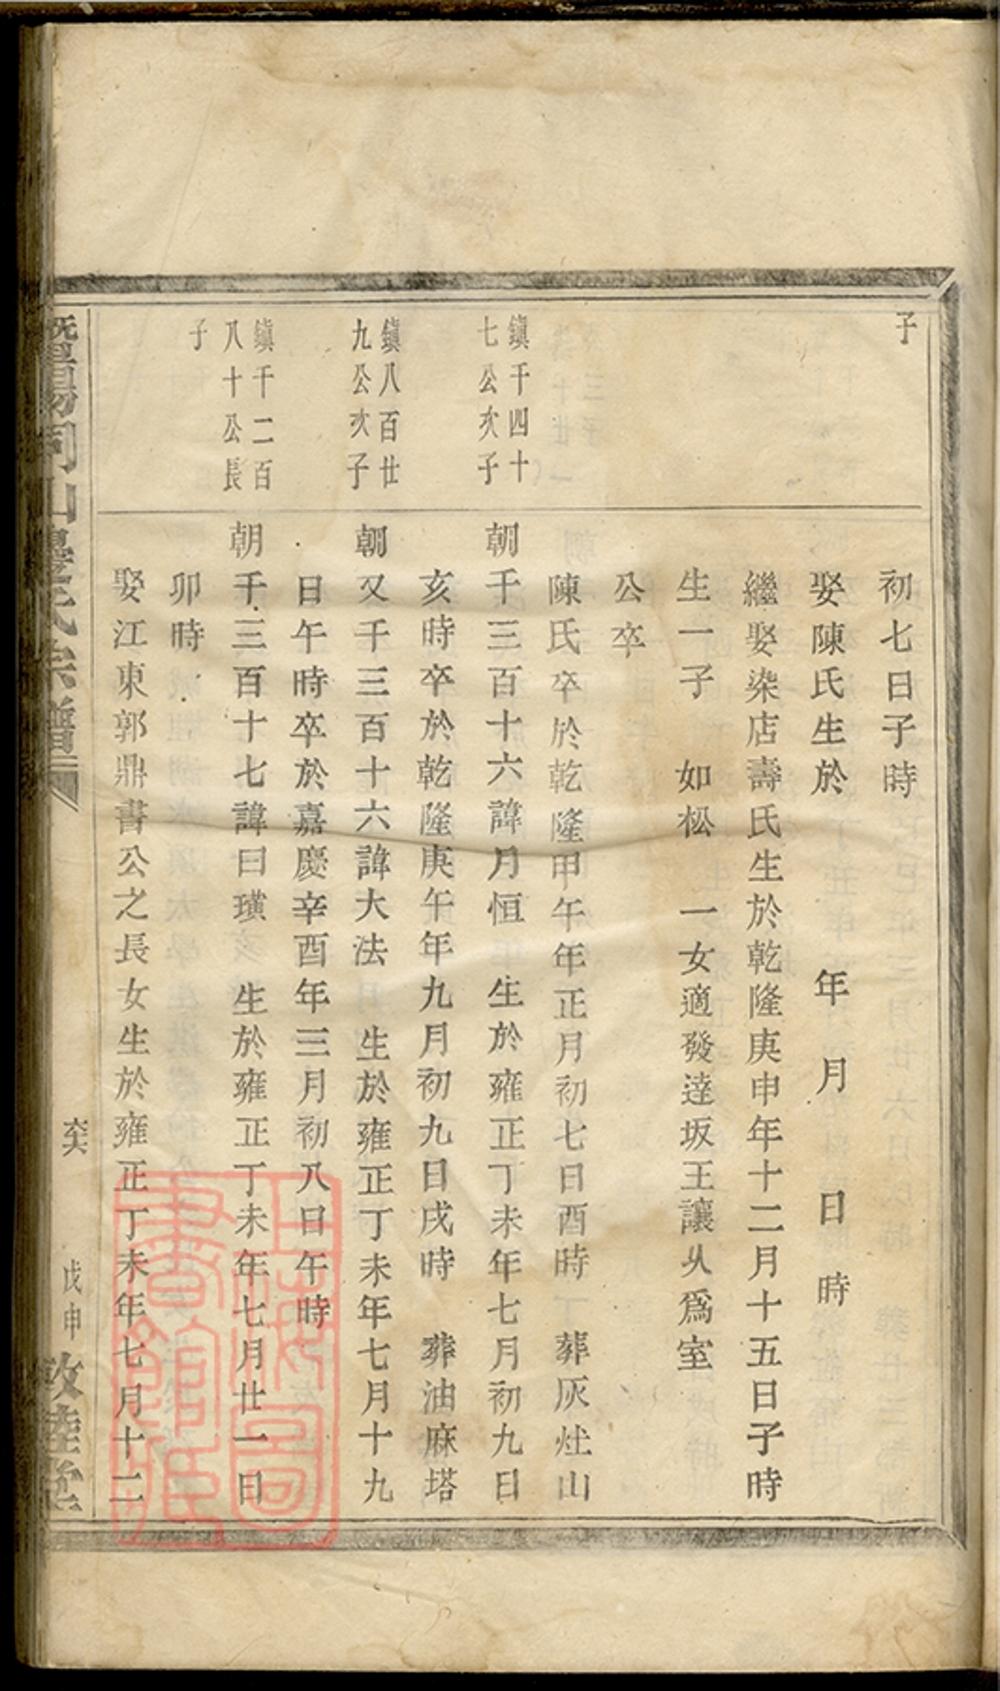 子
初七日子時
娶陳氏生於　年　月　日　時
繼娶染店壽氏生於乾隆庚申年十二月十五日子時
生一子　如松　一女適發達坂王讓从爲室
公卒
陳氏卒於乾隆甲午年正月初七日酉時　葬灰灶山
鎮千四十
七公次子
朝千三百十六諱月恒　生於雍正丁未年七月初九日
亥時卒於乾隆庚午年九月初九日戌時　葬油麻塔
鎮八百廿
九公次子
朝又千三百十六諱大法　生於雍正丁未年七月十九
日午時卒於嘉慶辛酉年三月初八日午時
鎮千二百
八十公長
子
朝千三百十七諱曰璜　生於雍正丁未年七月廿一日
卯時
娶江東郭鼎書公之長女生於雍正丁未年七月十二
暨陽同山邊氏宗譜
戊申
敦睦堂
上海圖
書館藏